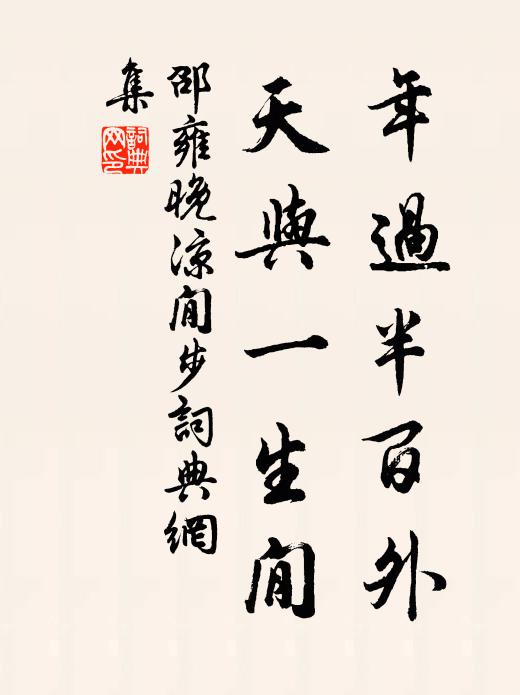 年過半百外
天與一生閒
邵雍晚涼閒步詞典網
集
詞典網印